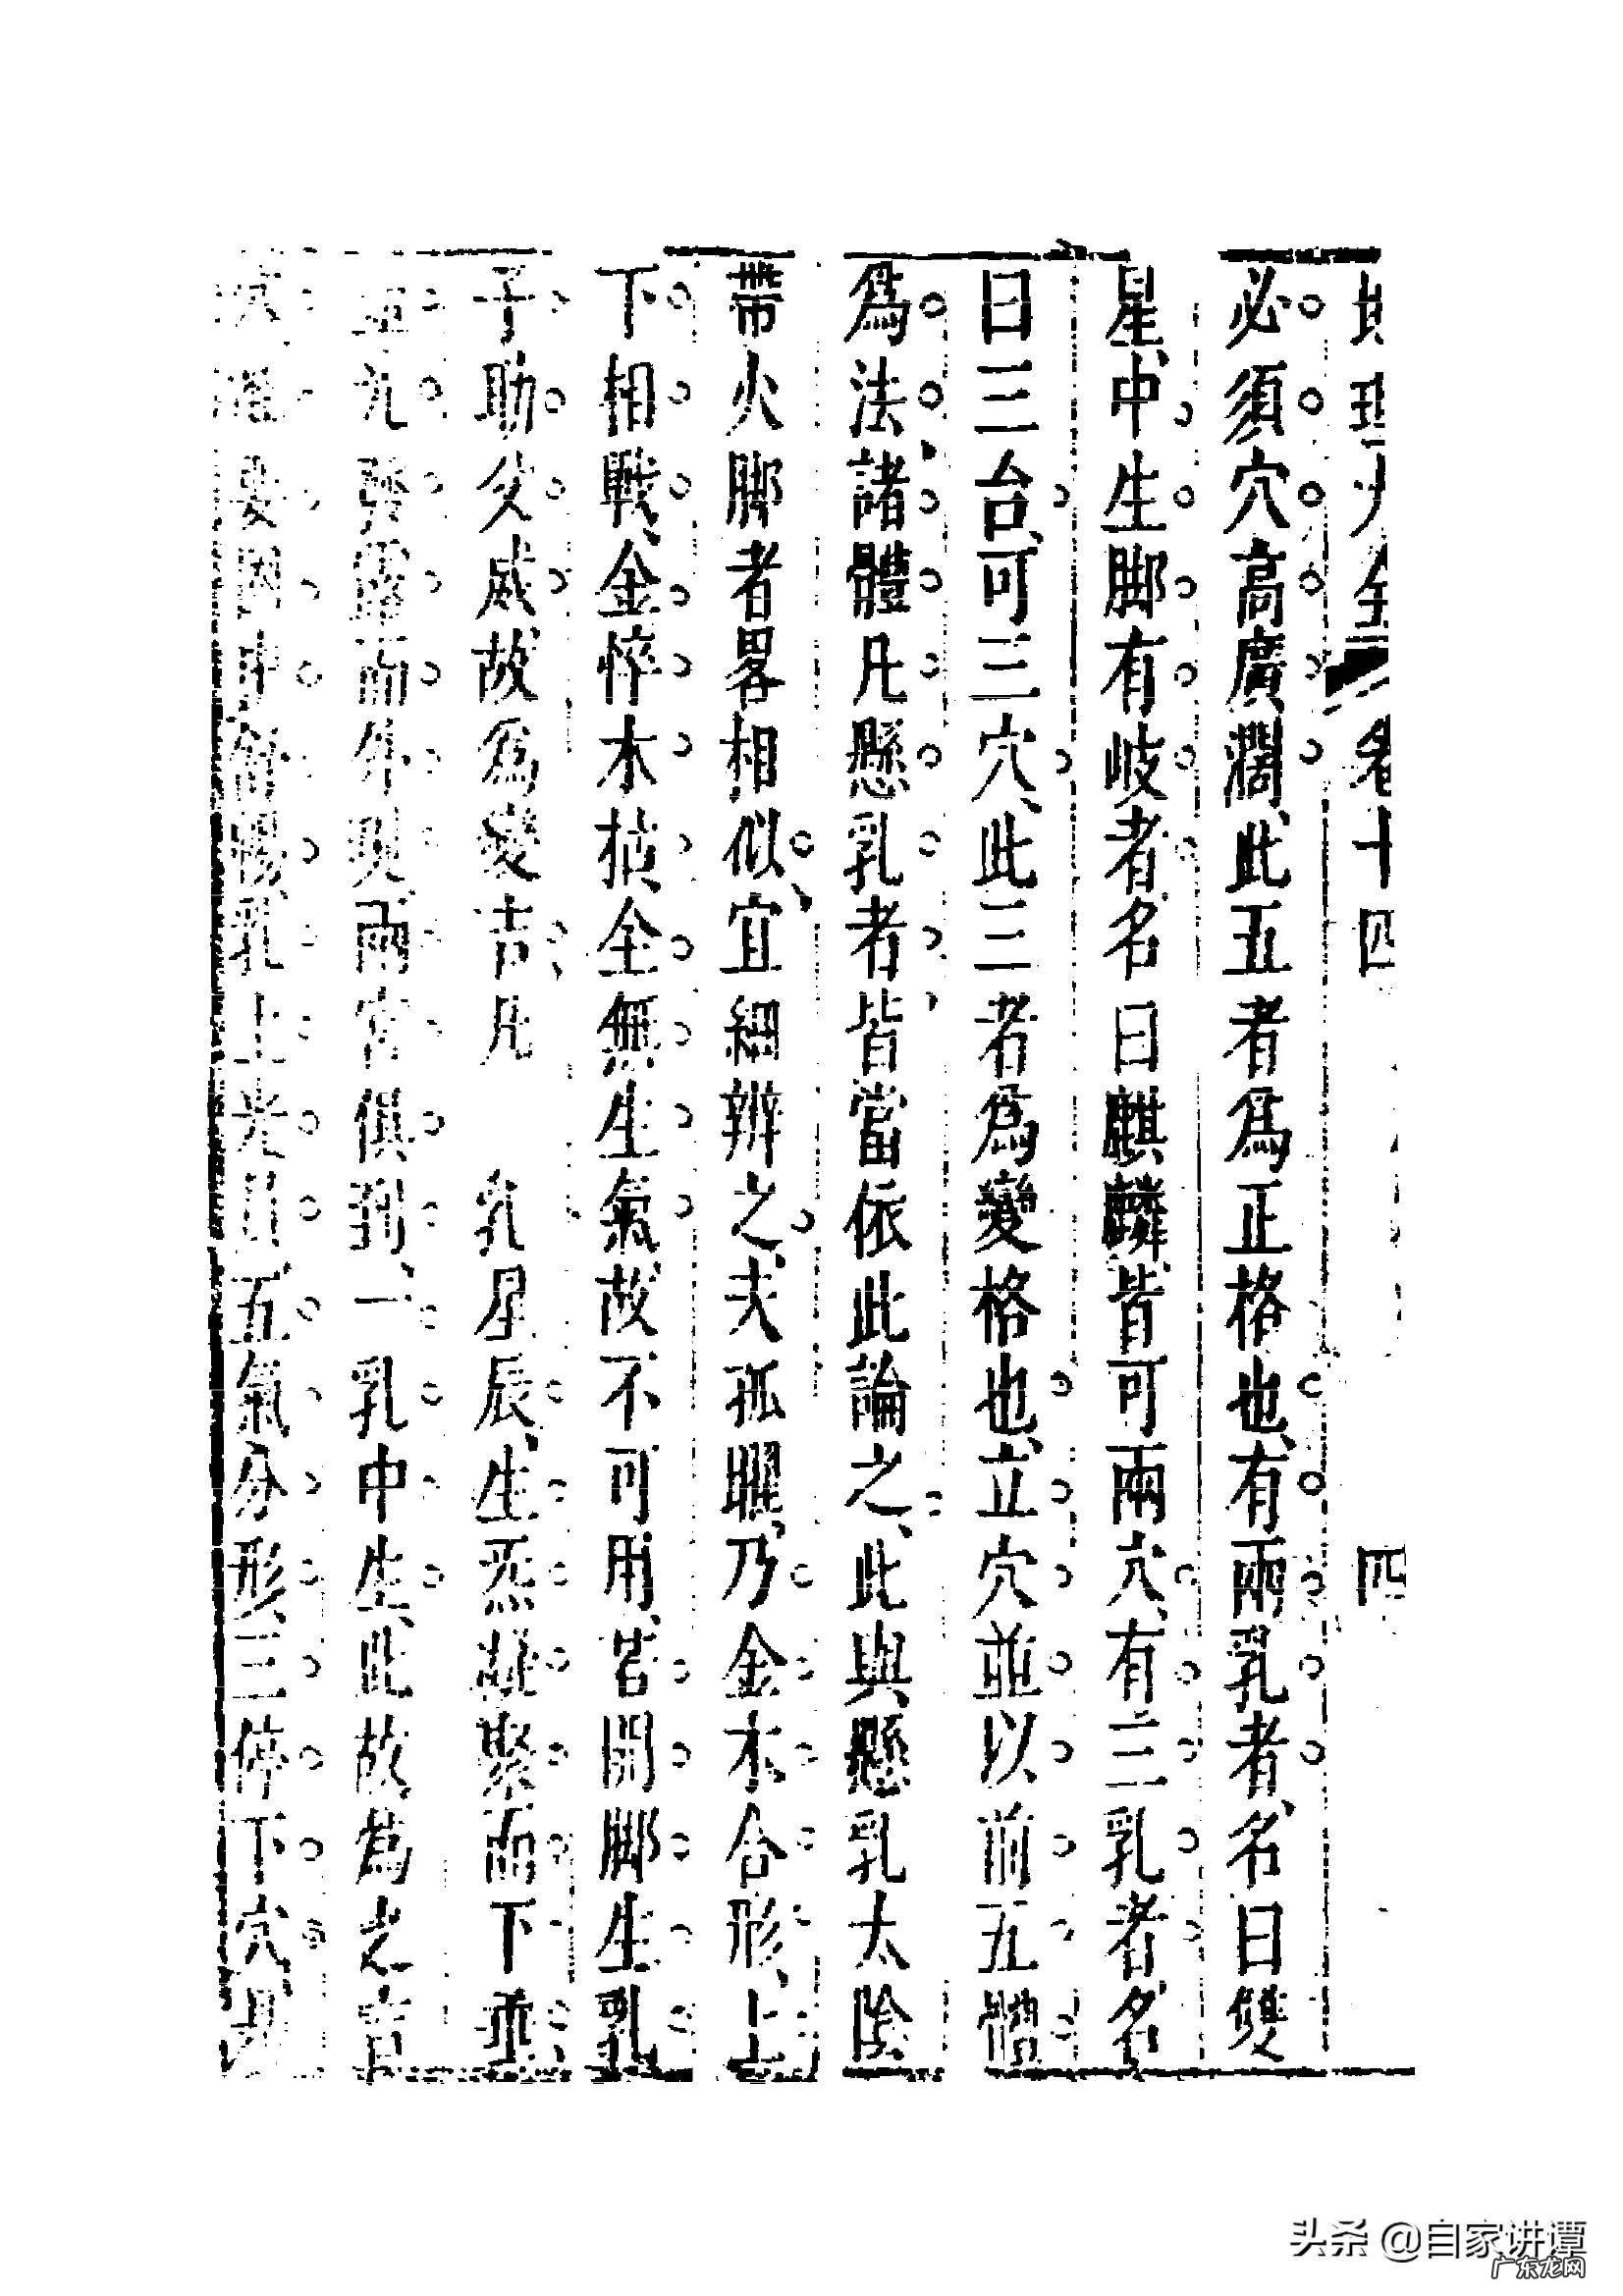 地理大全 卷十四 四
必須穴高廣濶此五者爲正格也有兩乳者名曰雙
星中生脚有岐者名曰麒麟皆可兩穴有三乳者名
曰三台可三穴此三者爲變格也立穴並以前五體
爲法諸體凡懸乳者皆當依此論之此與懸乳太陰
帶火脚者畧相似宜細辨之夫孤曜乃金木合形上
下相戰金悴木枯全無生氣故不可用若開脚生乳
子助父威故爲變吉凡 乳星辰生炁凝聚而下垂
九發露而外現兩宮俱到一乳中生此故爲之吉
穴 要 中舒暢乳上光 五氣分形三停下穴
头条 @自家讲谭
广东龙网